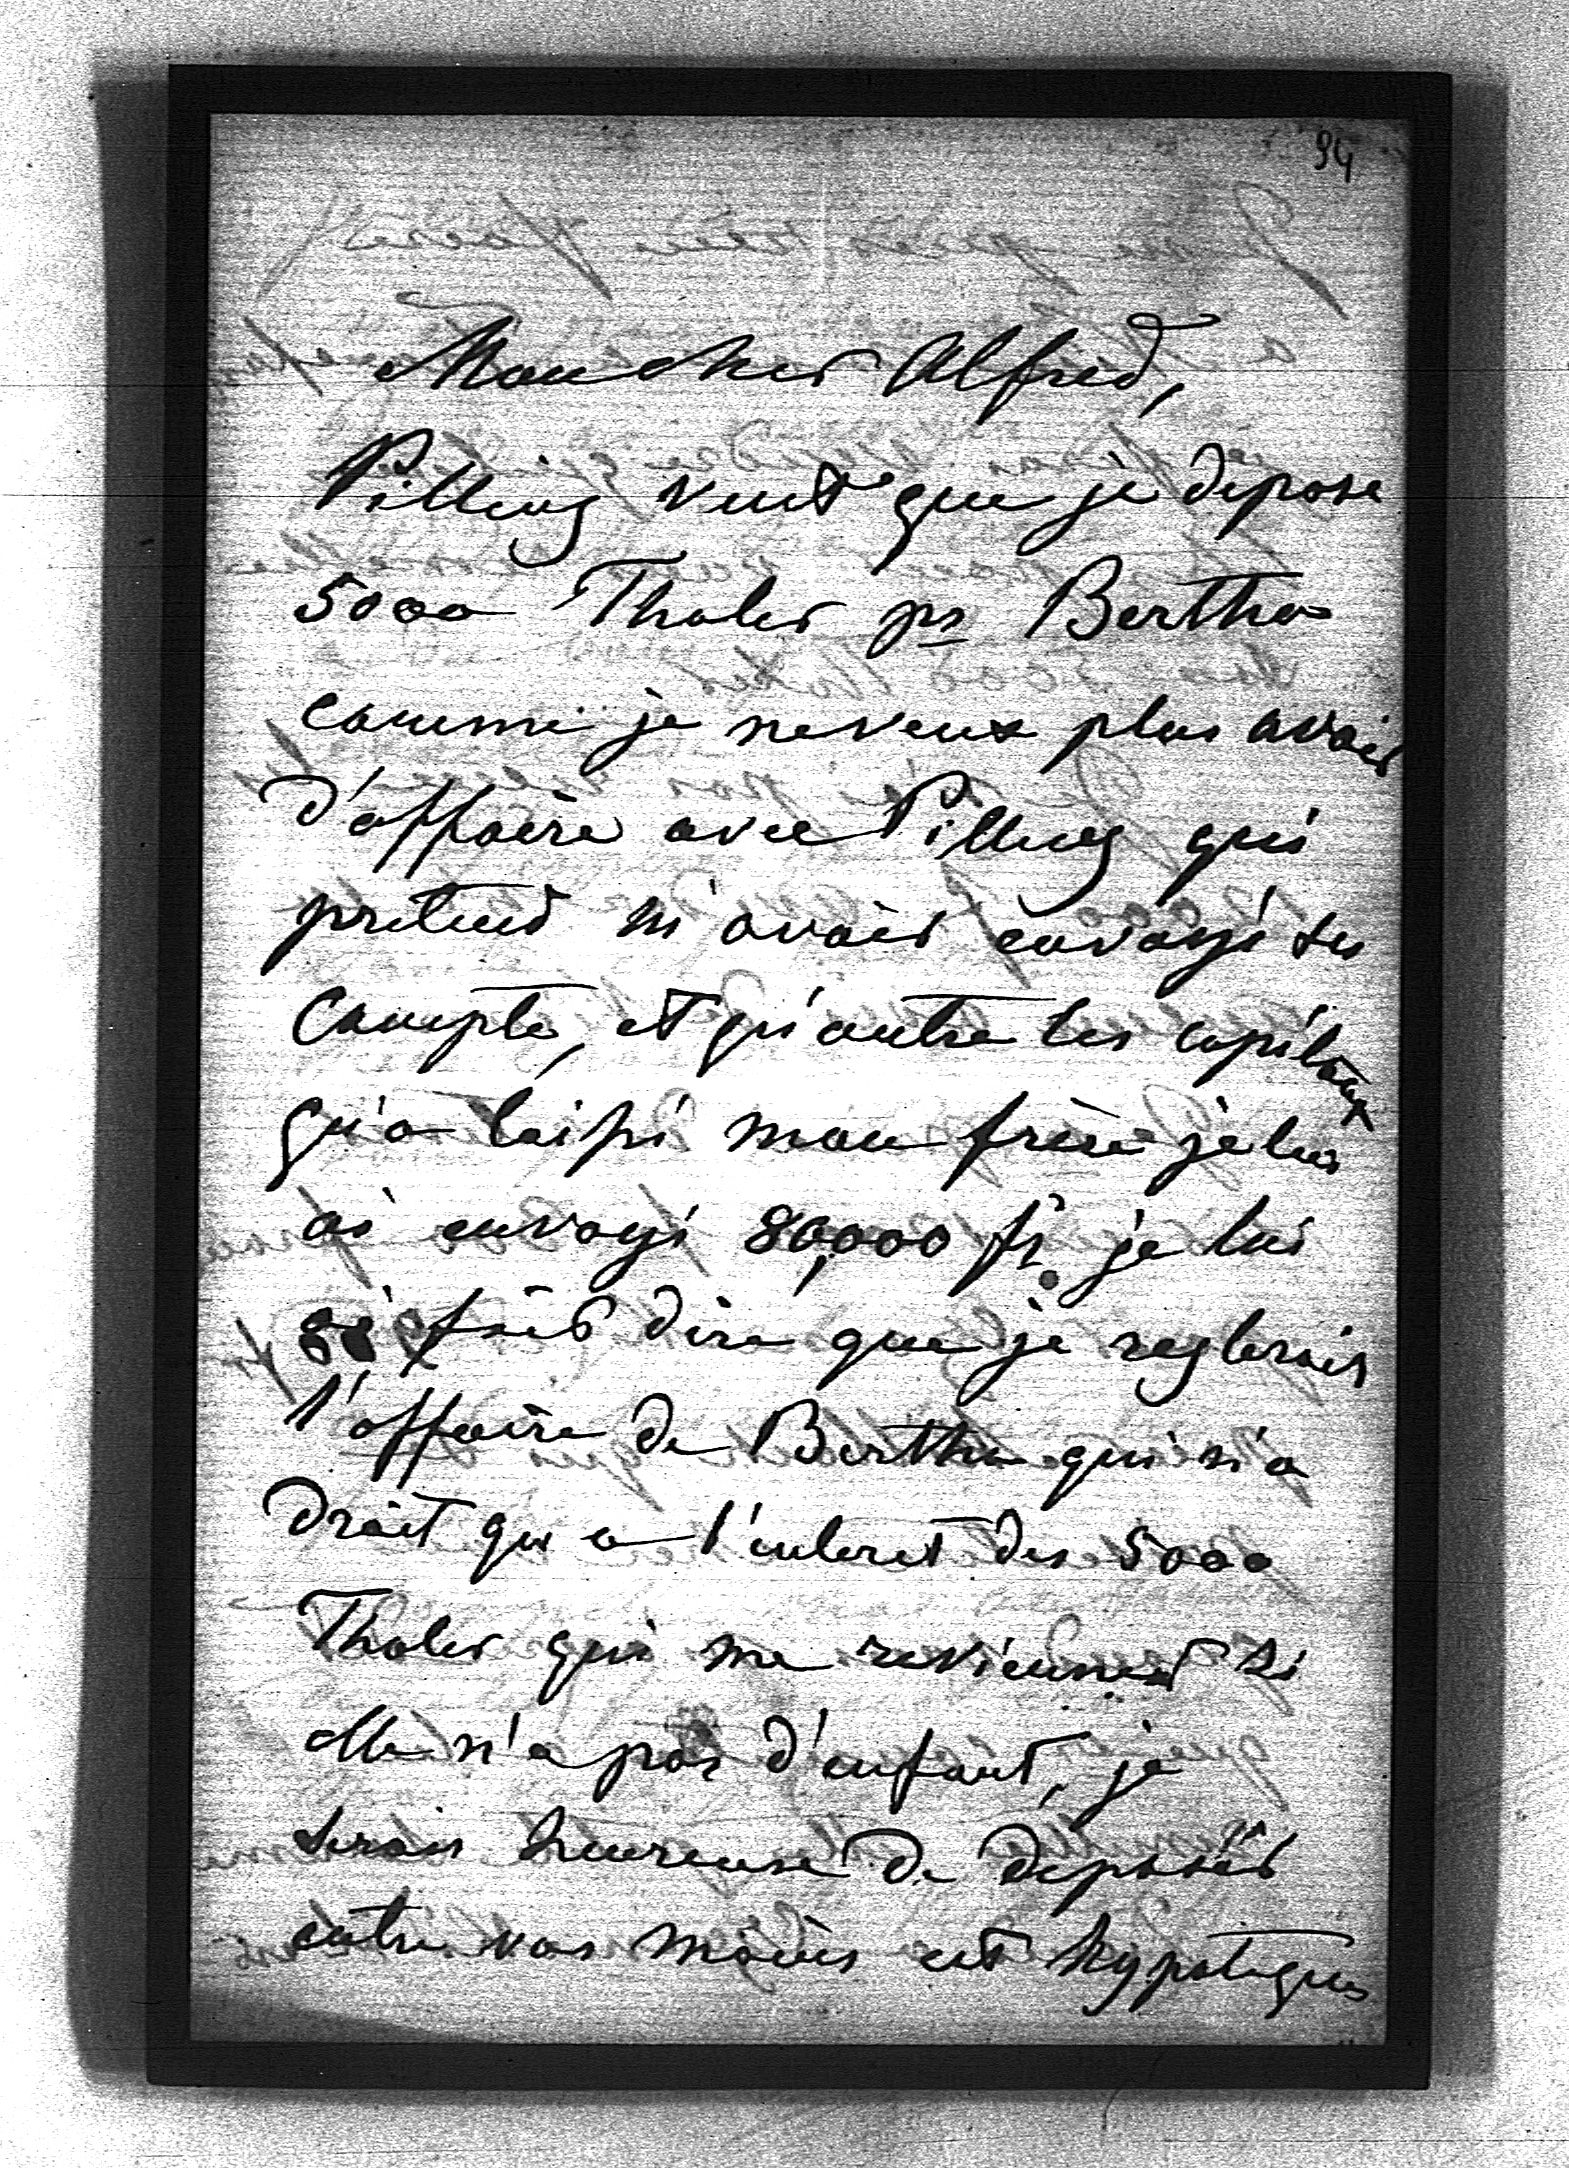 94
Mon cher Alfred,
Pilling veut que je depose
5000 Thaler pr Bertha
comme je ne veux plus avoir
d'affaire avec Pilling qui
pretend m'avoir envoyé ses
Compte, et qu'outre les capitaux
qu'a laissé mon frère je lui
ai envoyé 80,000 fr. je lui
ai fait dire que je reglerais
l'affaire de Bertha qui n'a
droit qu a l'interet des 5000
Thaler qui me reviennent si
elle n'a pas d'enfant, je
serais heureuse de déposer
entre vos mains cet hypoteques